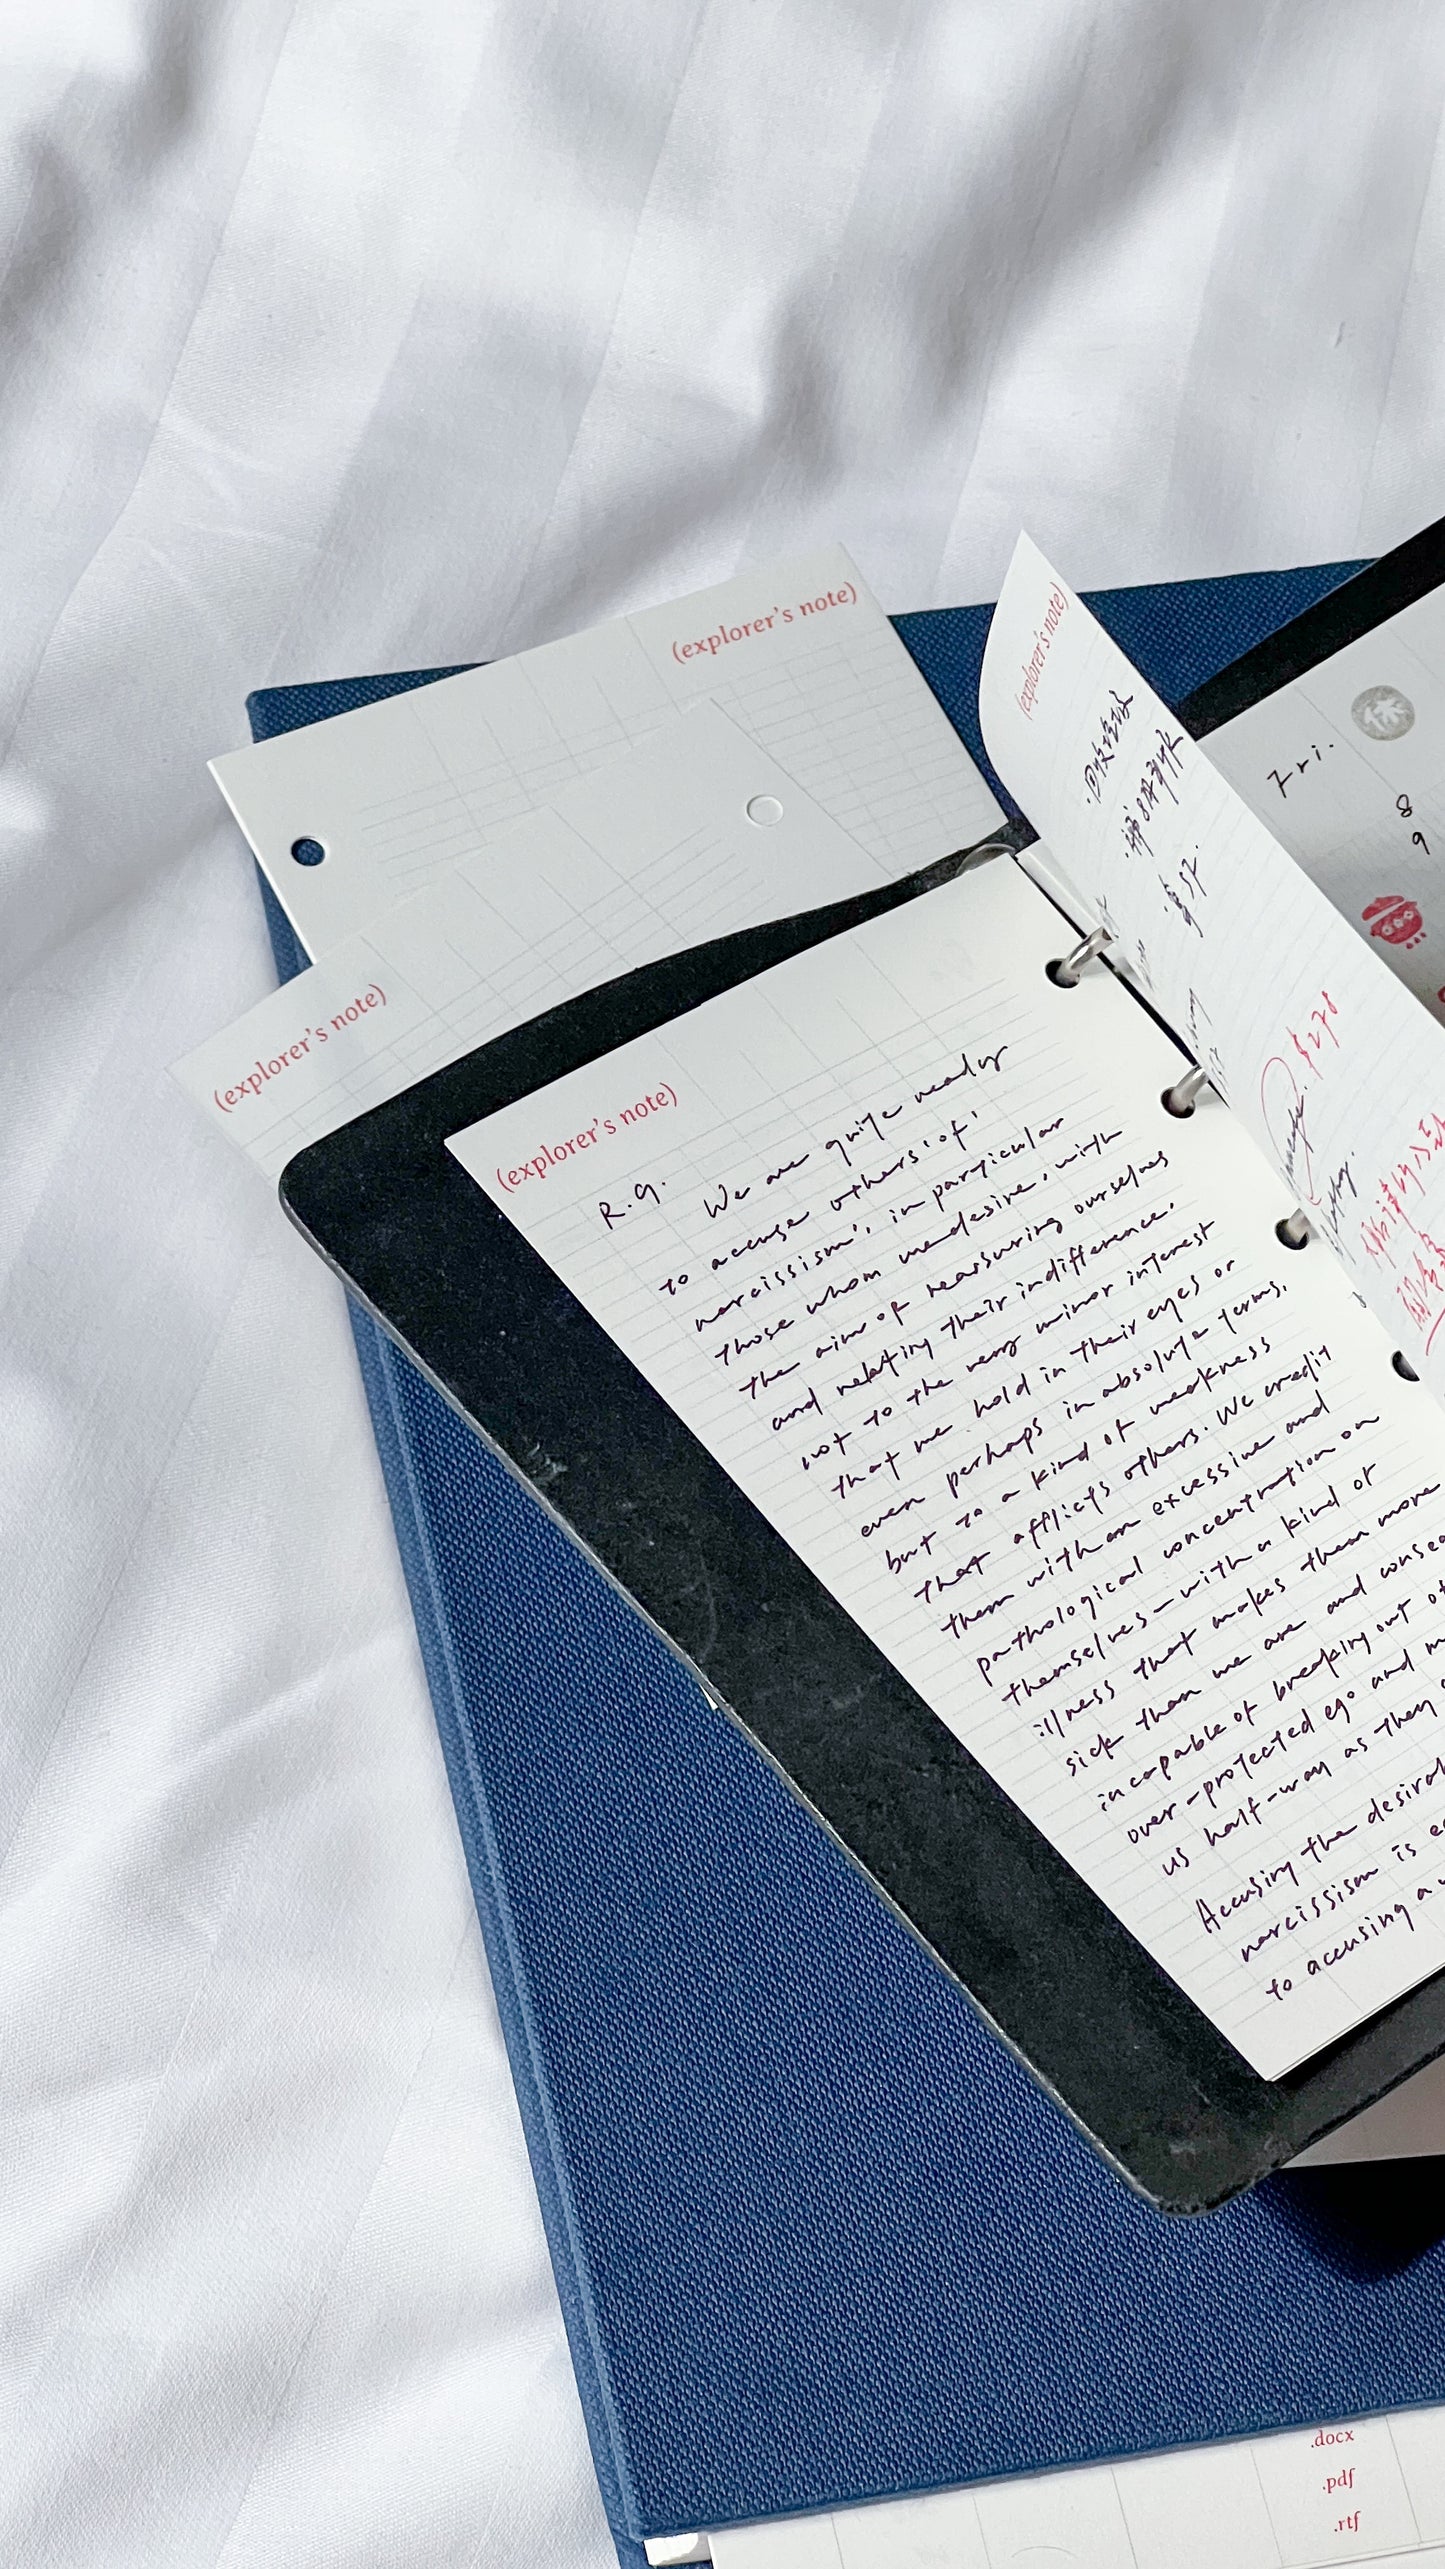 (explorer's note)
(explorer's note)
(explorer's note)
R.G. We are quite ready
to accuse others 'of'
narcissism', in particular
those whom we desire, with
the aim of reassuring ourselves
and relating their indifference,
not to the very minor interest
that we hold in their eyes or
even perhaps in absolute terms,
but to a kind of weakness
that afflicts others. We credit
them with an excessive and
pathological concentration on
themselves – with a kind of
illness that makes them more
sick than we are and
incapable of breaking out of
over-protected ego and
us half-way as they
Accusing the
narcissism is
to accusing a
(explorer's note)
$278
Fri.
休
8
9
.docx
.pdf
.rtf